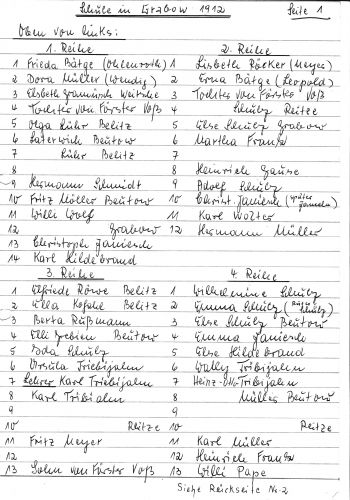 Schule in Grabow 1912 Seite 1
Oben von links:
1. Reihe 2. Reihe
1 Frieda Bätge (Ohlenroth) 1 Lisbeth Röcker (Meyer)
2 Dora Müller (Wendig) 2 Erna Bätge (Leopold)
3 Elsbeth 3 Tochter von Förster Voß
4 Tochter von Förster Voß 4 Schulz Reitze
5 Olga Lühr Belitz 5 Else Schulz Grabow
6 Beutow 6 Martha Frank
7 Lühr Belitz 7
8 8 Heinrich Gause
9 Hermann Schmidt 9 Adolf Schulz
10 Fritz Möller Beutow 10 Christ. Janiesch
11 Willi Wolf 11 Karl Wolter
12 Grabow 12 Hermann Müller
13 Christoph Janiesch
14 Karl Hildebrand
3. Reihe 4. Reihe
1 Elfriede Röwe Belitz 1 Wilhelmine Schulz
2 Ella Kofahl Belitz 2 Emma Schulz
3 Berta Rußmann 3 Else Schulz Beutow
4 Elli Beutow 4 Emma Janiesch
5 Ida Schulz 5 Else Hildebrand
6 Ursula Triebijahn 6 Wally Tribijahn
7 Lehrer Karl Triebijahn 7 Heinz-Otto Tribijahn
8 Karl Tribiahn 8 Müller Beutow
9 9
10 Reitze 10 Reitze
11 Fritz Meyer 11 Karl Müller
12 12 Heinrich Frank
13 Sohn von Förster Voß 13 Willi Pape
Siehe Rückseite Nr. 2